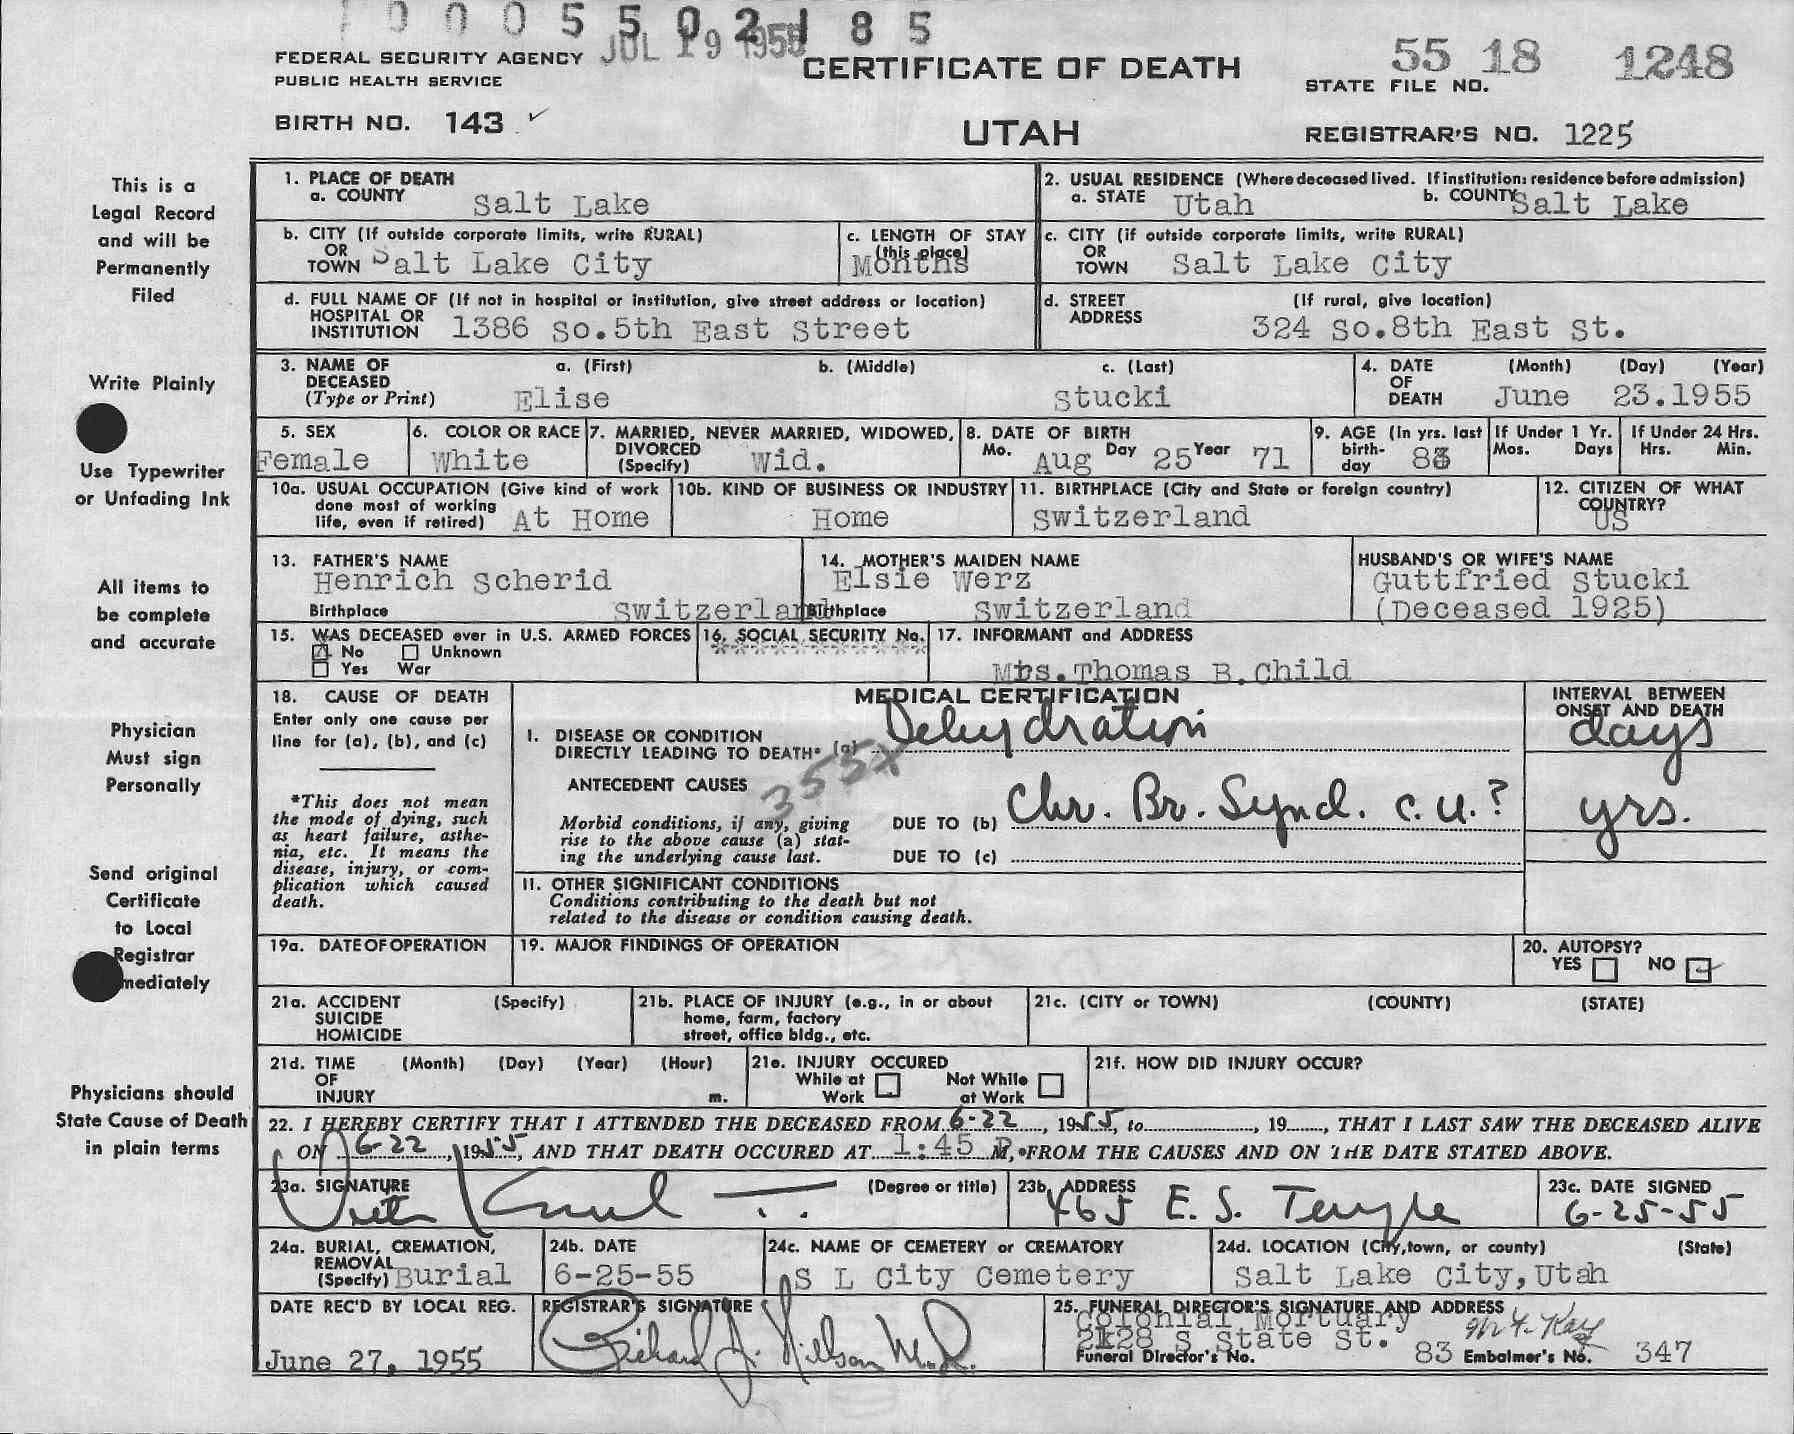 0005502185
JUL 19 1955
FEDERAL SECURITY AGENCY
PUBLIC HEALTH SERVICE
CERTIFICATE OF DEATH
UTAH
55 18 1248
STATE FILE NO.
BIRTH NO. 143 ✓
REGISTRAR'S NO. 1225
This is a
Legal Record
and will be
Permanently
Filed
Write Plainly
Use Typewriter
or Unfading Ink
All items to
be complete
and accurate
Physician
Must sign
Personally
Send original
Certificate
to Local
Registrar
mediately
Physicians should
State Cause of Death
in plain terms
1. PLACE OF DEATH
a. COUNTY Salt Lake
2. USUAL RESIDENCE (Where deceased lived. If institution: residence before admission)
a. STATE Utah b. COUNTY Salt Lake
b. CITY (If outside corporate limits, write RURAL)
OR
TOWN Salt Lake City
c. LENGTH OF STAY
(this place)
Months
c. CITY (if outside corporate limits, write RURAL)
OR
TOWN Salt Lake City
d. FULL NAME OF (If not in hospital or institution, give street address or location)
HOSPITAL OR
INSTITUTION 1386 So.5th East Street
d. STREET (If rural, give location)
ADDRESS 324 So.8th East St.
3. NAME OF a. (First) b. (Middle) c. (Last)
DECEASED
(Type or Print) Elise Stucki
4. DATE (Month) (Day) (Year)
OF
DEATH June 23.1955
5. SEX
Female
6. COLOR OR RACE
White
7. MARRIED, NEVER MARRIED, WIDOWED,
DIVORCED
(Specify) Wid.
8. DATE OF BIRTH
Mo. Aug Day 25 Year 71
9. AGE (In yrs. last
birth-
day 83
If Under 1 Yr.
Mos. Days
If Under 24 Hrs.
Hrs. Min.
10a. USUAL OCCUPATION (Give kind of work
done most of working
life, even if retired) At Home
10b. KIND OF BUSINESS OR INDUSTRY
Home
11. BIRTHPLACE (City and State or foreign country)
Switzerland
12. CITIZEN OF WHAT
COUNTRY?
US
13. FATHER'S NAME
Henrich Scherid
Birthplace Switzerland
14. MOTHER'S MAIDEN NAME
Elsie Werz
Birthplace Switzerland
HUSBAND'S OR WIFE'S NAME
Guttfried Stucki
(Deceased 1925)
15. WAS DECEASED ever in U.S. ARMED FORCES
No Unknown
Yes War
16. SOCIAL SECURITY No.
***********
17. INFORMANT and ADDRESS
Mrs.Thomas B.Child
18. CAUSE OF DEATH
Enter only one cause per
line for (a), (b), and (c)
*This does not mean
the mode of dying, such
as heart failure, asthe-
nia, etc. It means the
disease, injury, or com-
plication which caused
death.
MEDICAL CERTIFICATION
INTERVAL BETWEEN
ONSET AND DEATH
I. DISEASE OR CONDITION
DIRECTLY LEADING TO DEATH* (a) Dehydration days
355X
ANTECEDENT CAUSES
Morbid conditions, if any, giving
rise to the above cause (a) stat-
ing the underlying cause last.
DUE TO (b) Chr. Br. Synd. c.u.? yrs.
DUE TO (c)
11. OTHER SIGNIFICANT CONDITIONS
Conditions contributing to the death but not
related to the disease or condition causing death.
19a. DATE OF OPERATION
19. MAJOR FINDINGS OF OPERATION
20. AUTOPSY?
YES NO
21a. ACCIDENT (Specify)
SUICIDE
HOMICIDE
21b. PLACE OF INJURY (e.g., in or about
home, farm, factory
street, office bldg., etc.
21c. (CITY or TOWN) (COUNTY) (STATE)
21d. TIME (Month) (Day) (Year) (Hour)
OF
INJURY m.
21e. INJURY OCCURED
While at
Work
Not While
at Work
21f. HOW DID INJURY OCCUR?
22. I HEREBY CERTIFY THAT I ATTENDED THE DECEASED FROM 6-22, 1955, to, 19, THAT I LAST SAW THE DECEASED ALIVE
ON 6-22, 1955, AND THAT DEATH OCCURED AT 1:45 P. M, FROM THE CAUSES AND ON THE DATE STATED ABOVE.
23a. SIGNATURE (Degree or title)
23b. ADDRESS
465 E. S. Temple
23c. DATE SIGNED
6-25-55
24a. BURIAL, CREMATION,
REMOVAL
(Specify) Burial
24b. DATE
6-25-55
24c. NAME OF CEMETERY or CREMATORY
S L City Cemetery
24d. LOCATION (City, town, or county) (State)
Salt Lake City,Utah
DATE REC'D BY LOCAL REG.
June 27, 1955
REGISTRAR'S SIGNATURE
Richard J. Nilson M.D.
25. FUNERAL DIRECTOR'S SIGNATURE AND ADDRESS
Colonial Mortuary
2128 S State St.
Funeral Director's No. 83 Embalmer's No. 347